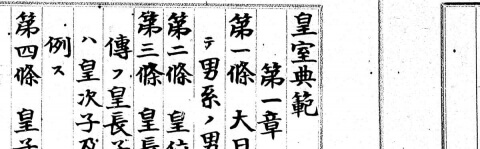 皇室典範
第一章
第一條 大日
テ男系ノ男
第二條 皇位
第三條 皇長
傳フ皇長子
ハ皇次子及
例ス
第四條 皇子